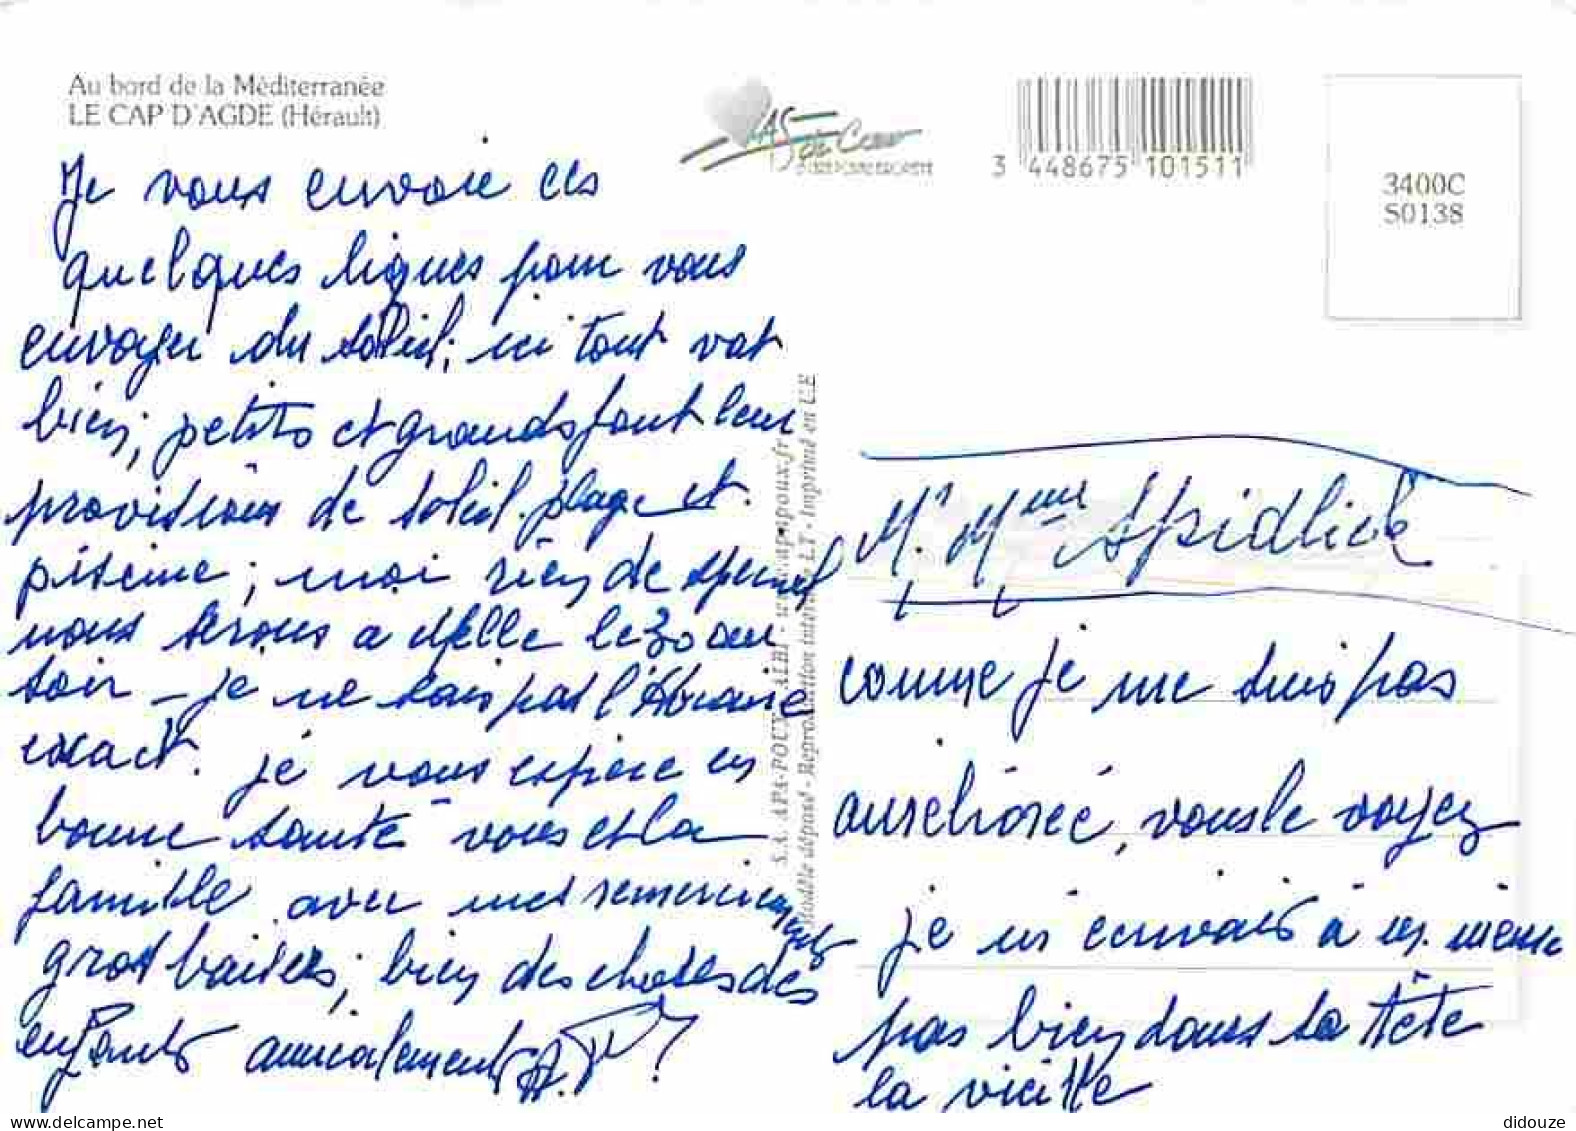 Au bord de la Méditerranée
LE CAP D'AGDE (Hérault)
As de Cœur
3 448675 101511
3400C
S0138
Je vous envoie ces
quelques lignes pour vous
envoyer du soleil; ici tout vat
bien; petits et grands font leur
provisions de soleil. plage et
piscine; moi rien de spécial
nous serons a delle le 30 au
soir - je ne sais pas l'horaire
exact. je vous espère en
bonne santé vous et la
famille avec mes remerciements
gros baisers; bien des choses des
enfants amicalement
S.A. APA-POUX - ALBI - www.apapoux.fr
Modèle déposé - Reproduction interdite LT - Imprimé en U.E
Mr Mme Spidlick
comme je me suis pas
améliorée, vous le voyez
je m'écrivais à moi même
pas bien dans sa tête
la vieille
didouze